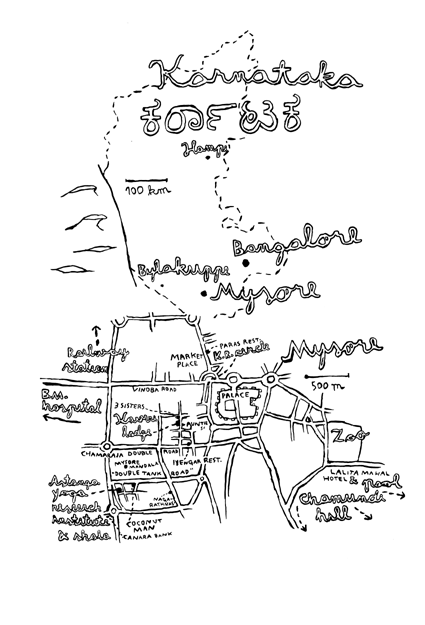 Karnataka
ಕರ್ನಾಟಕ
Hampi
100 km
Bangalore
Bylakuppe
Mysore
PARAS REST.
K.R. circle
MARKET PLACE
Railway station
Mysore
500 m
VINOBA ROAD
PALACE
3 SISTERS
lodge
hospital
Zoo
CHAMARAJA DOUBLE ROAD
MYSORE MANDALA
IYENGAR REST.
DOUBLE TANK ROAD
LALITA MAHAL HOTEL & pool
Chamundi hill
Astanga yoga research institute & shala
COCONUT MAN
CANARA BANK